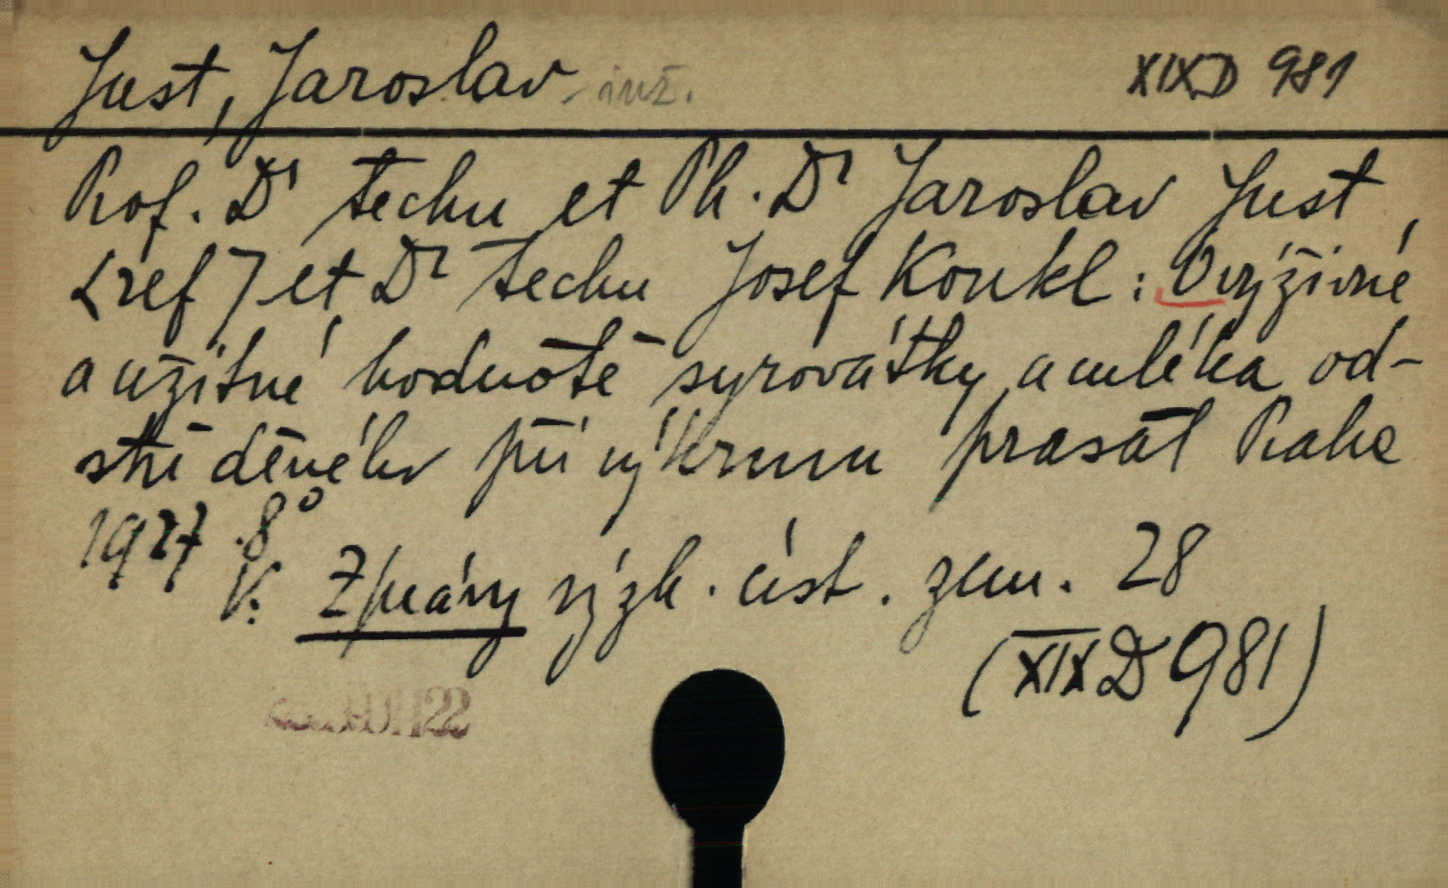 Just, Jaroslav inž. XIX D 981
Prof. Dr techn et Ph. Dr Jaroslav Just,
et Dr techn Josef Koukl: O výživné
a užitné hodnotě syrovátky a mléka od-
středěného při výkrmu prasat Praha
1927. 8°
V: Zprávy výzk. úst. zem. 28
(XIX D 981)